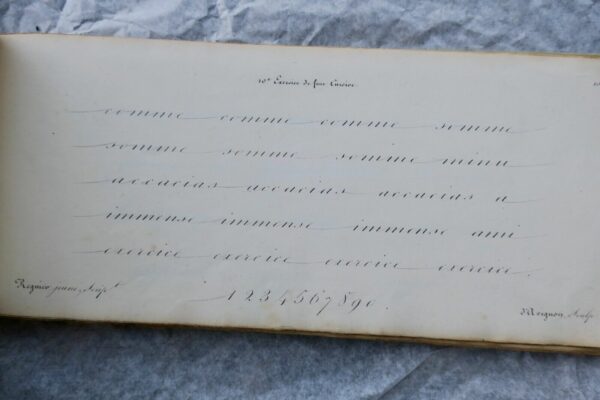 10e Exercice de fine Cursive.
comme comme comme somme
somme somme somme minu
accacias accacias accacias a
immense immense immense ami
exercice exercice exercice exercice.
1234567890.
Regnier jeune, Sculpt.
Sculp